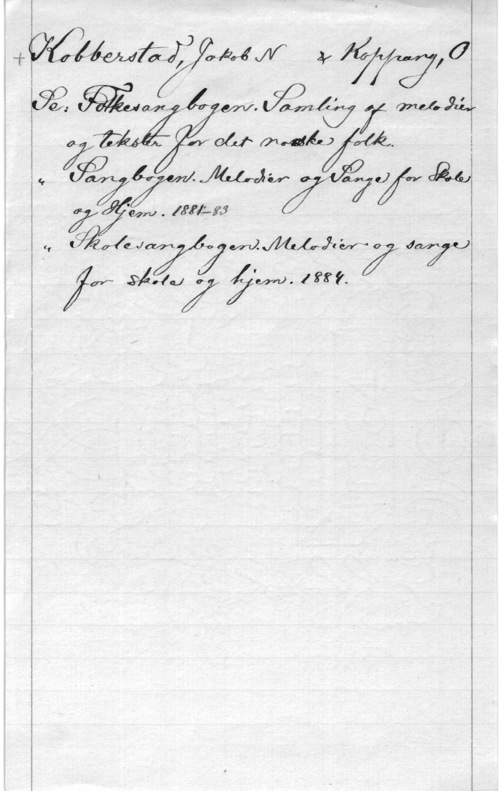 + Kobberstad, Jakob N & Koppang, O
Se: Folkesangbogen. Samling af melodier
og tekster for det norske folk.
" Sangbogen. Melodier og Sange for Skole
og Hjem. 1881-83
" Skolesangbogen. Melodier og sange
for skole og hjem. 1884.